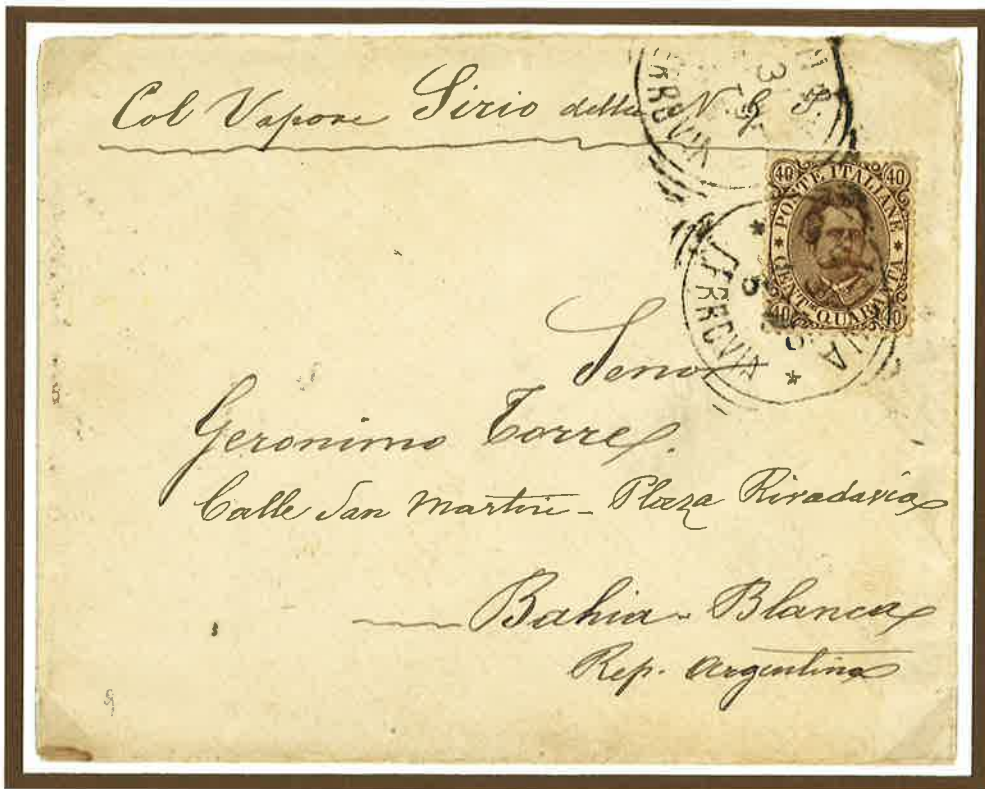 Col Vapore Sirio della N. G. I.
40 40
POSTE ITALIANE
* CENT. QUARANTA *
40 40
FERROVIA
Senor
Geronimo Torres.
Calle San Martin - Plaza Rivadavia
Bahia - Blanca
Rep. Argentina